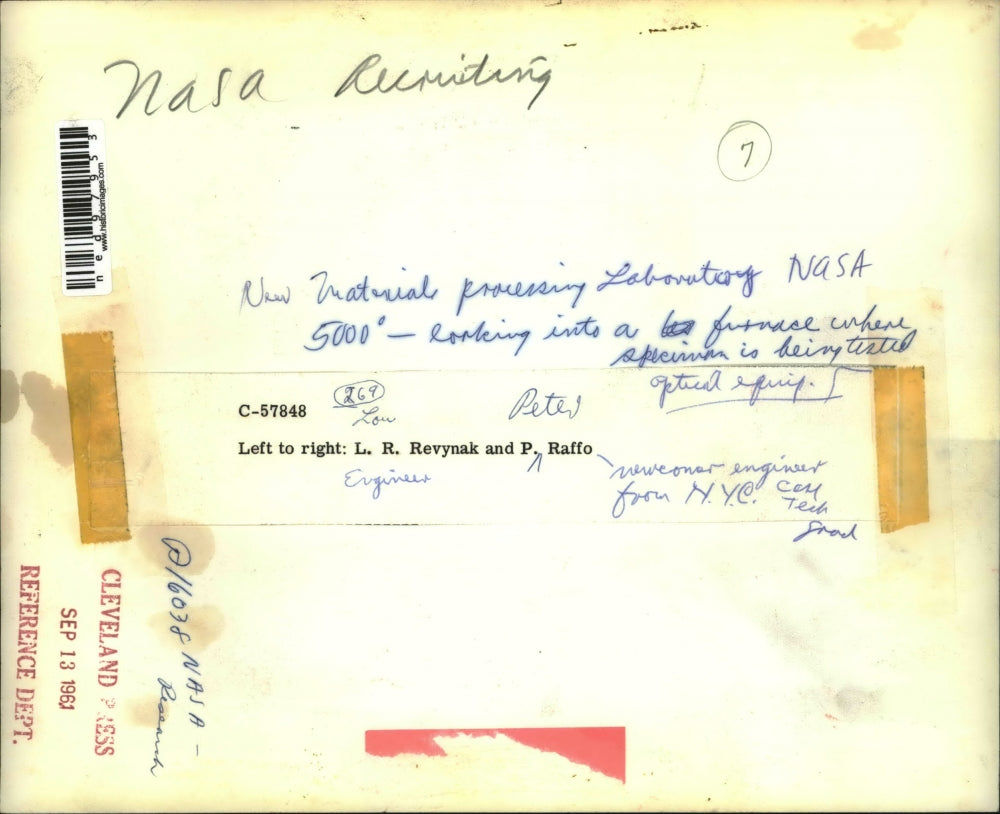 Nasa Recruiting
7
ned97953
www.historicimages.com
New Materials processing Laboratory NASA
5000° — looking into a furnace where
specimen is being tested
optical equip.
C-57848
269
Lou
Peter
Left to right: L. R. Revynak and P. Raffo
Engineer
newcomer engineer
from N.Y.C. Case
Tech
Grad
16038 NASA -
Research
CLEVELAND PRESS
SEP 13 1961
REFERENCE DEPT.